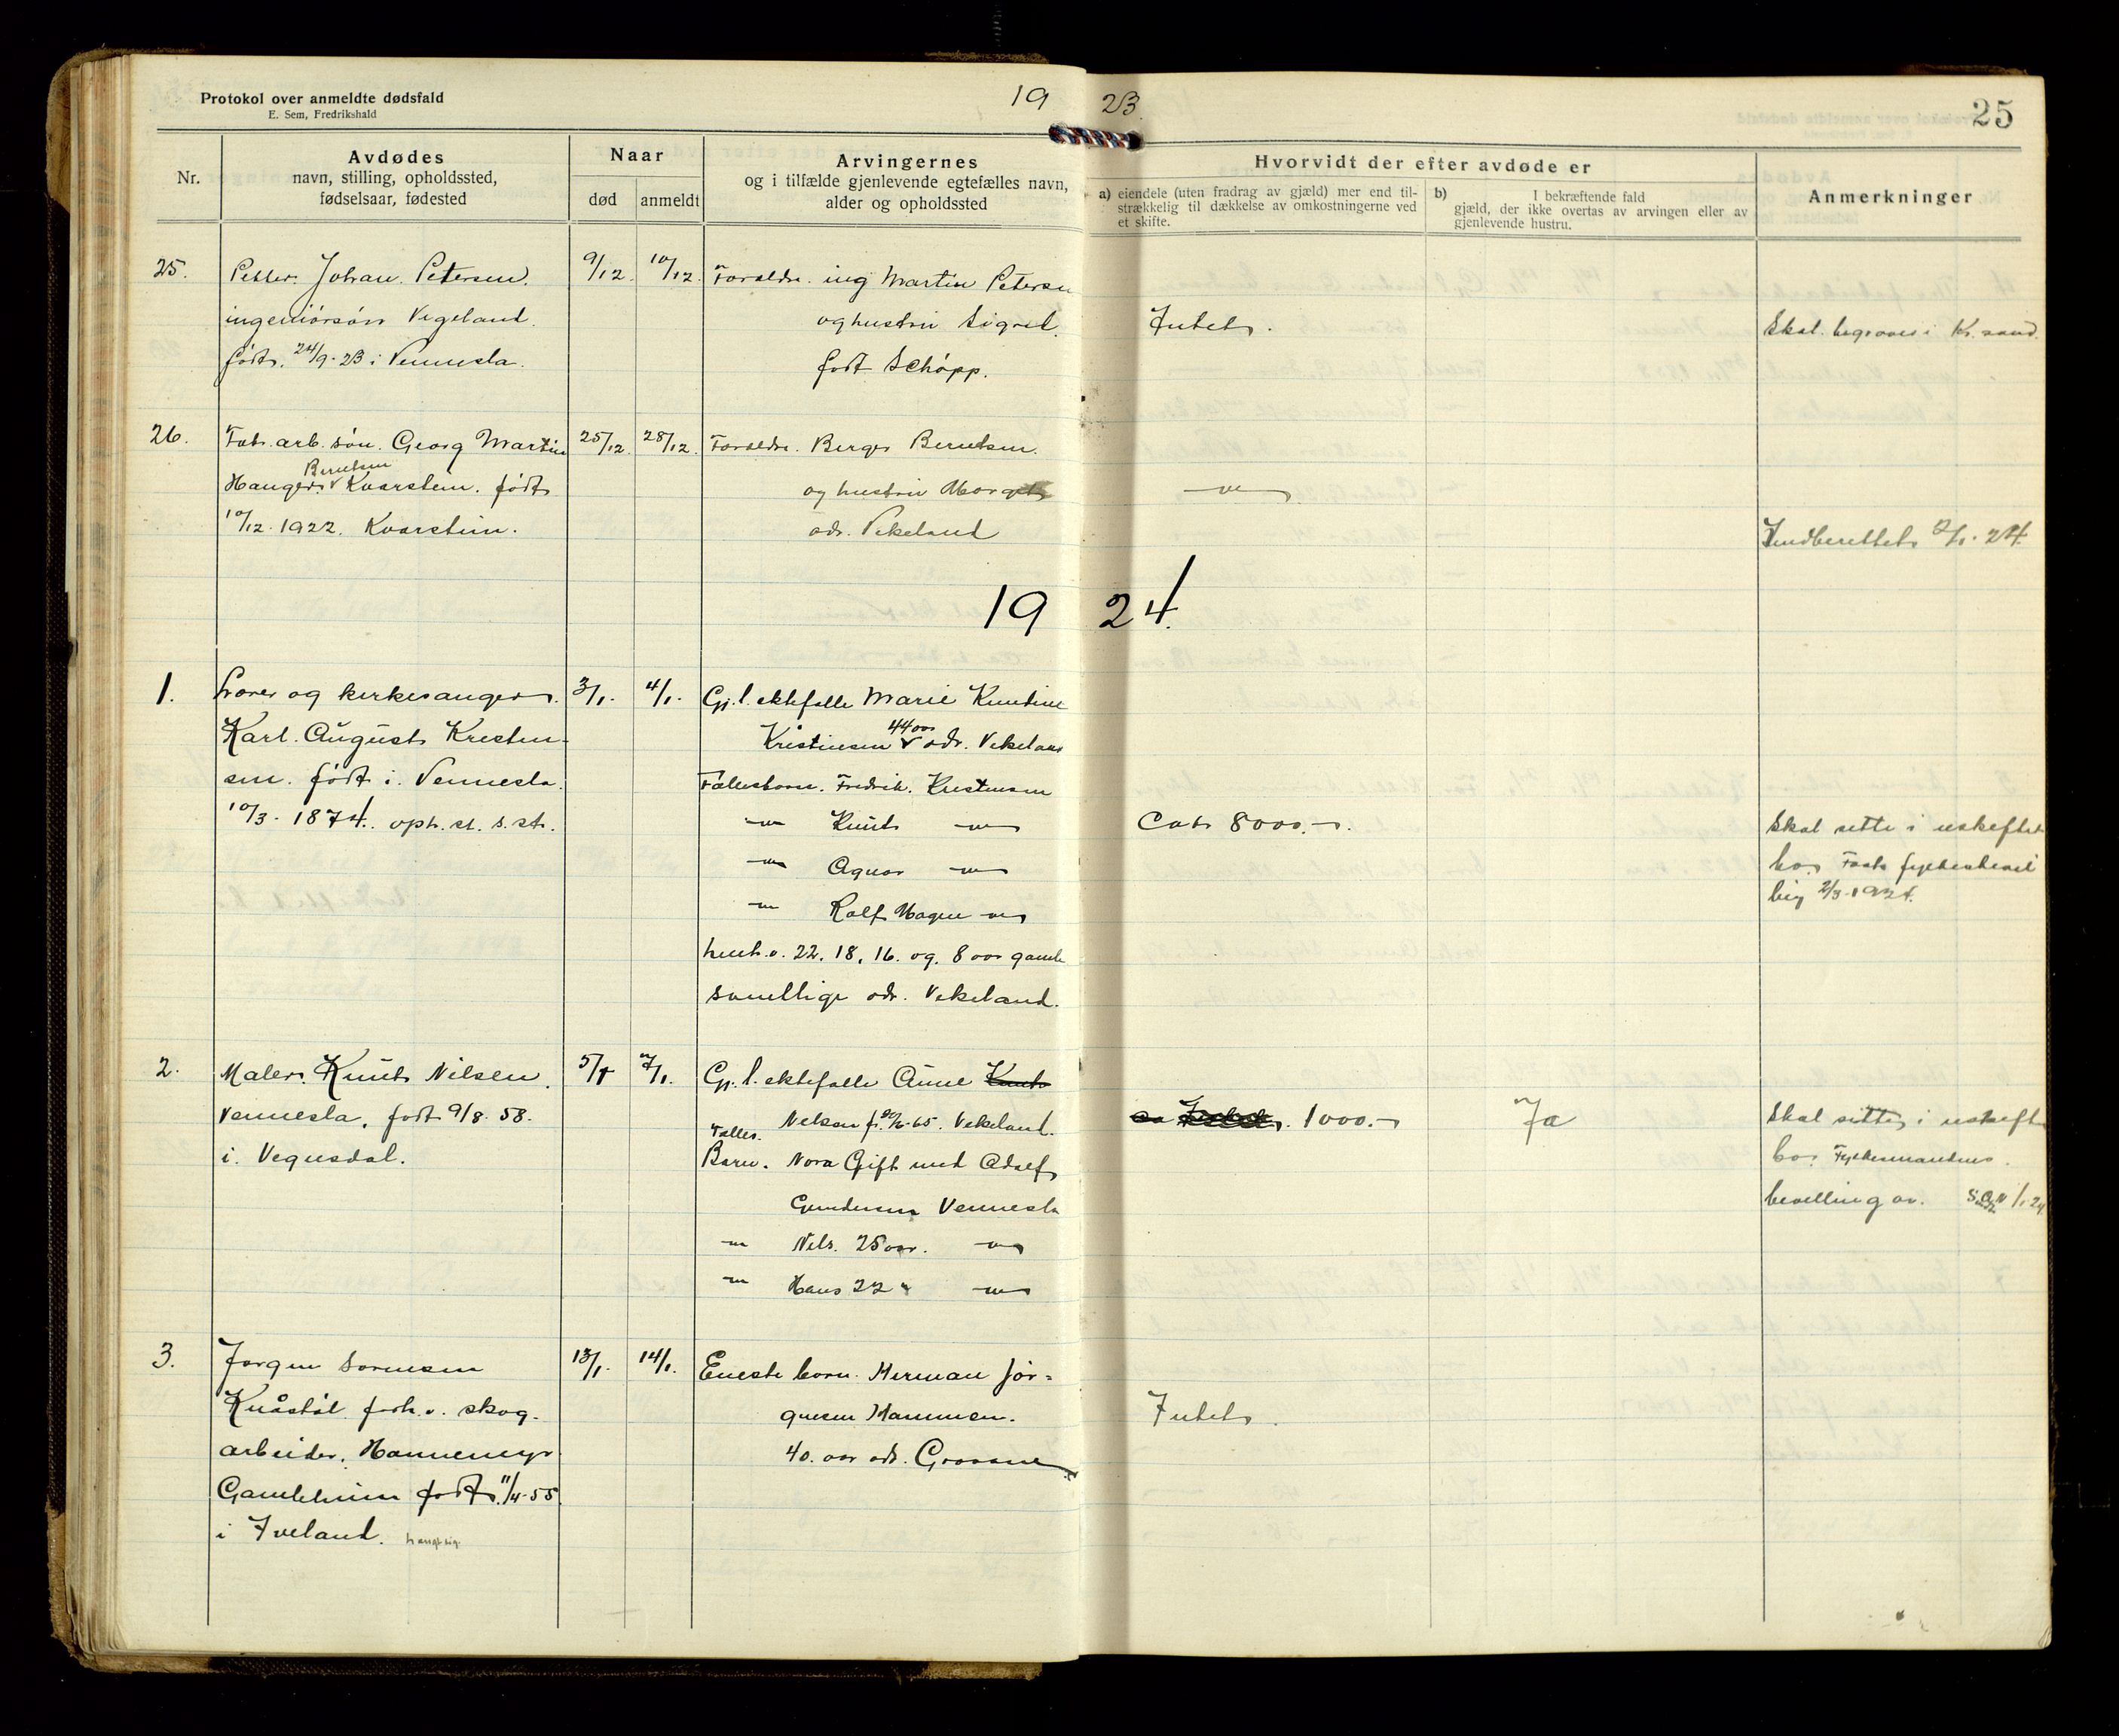 Protokol over anmeldte dødsfald
E. Sem, Fredrikshald
19 23.
25
Nr.
Avdødes
navn, stilling, opholdssted,
fødselsaar, fødested
Naar
død
anmeldt
Arvingernes
og i tilfælde gjenlevende egtefælles navn,
alder og opholdssted
Hvorvidt der efter avdøde er
a) eiendele (uten fradrag av gjæld) mer end til-
strækkelig til dækkelse av omkostningerne ved
et skifte.
b) I bekræftende fald
gjæld, der ikke overtas av arvingen eller av
gjenlevende hustru.
Anmerkninger
25.
Petter Johan Petersen.
ingeniørsøn Vigeland.
født. 24/9-23 i Vennesla.
9/12.
10/12.
Foraldre. ing Martin Petersen
og hustru Sigrid
født Schöpp.
Intet.
Skal begraves i Kr. sand.
26.
Fab. arb. søn. Georg Martin
Berntsen
Hanger Kvarstein. født
10/12. 1922. Kvarstein.
25/12.
28/12.
Foraldre. Berger Berntsen.
og hustru Margit
adr. Vikeland
— " —
Indberettet 2/1. 24.
19 24.
1.
Lærer og kirkesanger.
Karl. August Kristen-
sen. født i. Vennesla.
10/3. 1874. oph. st. s. st.
3/1.
4/1.
Gj. l. ektefelle Marie Knutine
44 aar
Kristensen adr. Vikeland
Fællesbarn. Fredrik. Kristensen
— " — Knut — " —
— " — Agnar — " —
— " — Ralf Magne — " —
henh. v. 22. 18. 16. og. 8 aar gamle
samtlige adr. Vikeland.
Cat. 8000.-
Skal sitte i uskiftet
bo. Faat fylkesbevil
ling 2/3. 1924.
2.
Maler. Knut Nilsen.
Vennesla, født 9/8. 58.
i. Vegusdal.
5/1
7/1.
Gj. l. ektefelle Anne Knuts
Nilsen f. 20/6-65. Vikeland.
Fælles.
Barn. Nora Gift med Adolf
Gundersen Vennesla
— " — Nils. 25 aar. — " —
— " — Hans 22 " — " —
1000.-
Ja
Skal sitte i uskiftet
bo. Fylkesmandens
bevilling av.
3.
Jørgen Sørensen
Knåstøl forh. v. skog-
arbeider. Hannemyr
Gamleheim født. 11/4-55
i Iveland.
13/1.
14/1.
Eneste barn. Herman Jør-
gensen Hammen.
40. aar adr. Groovane
Intet.